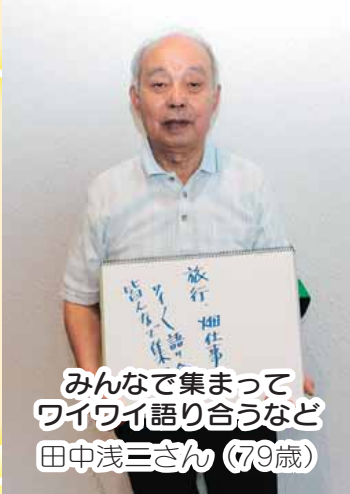 旅行、畑仕事
ワイく語り合
皆んなで集
みんなで集まって
ワイワイ語り合うなど
田中浅三さん（79歳）